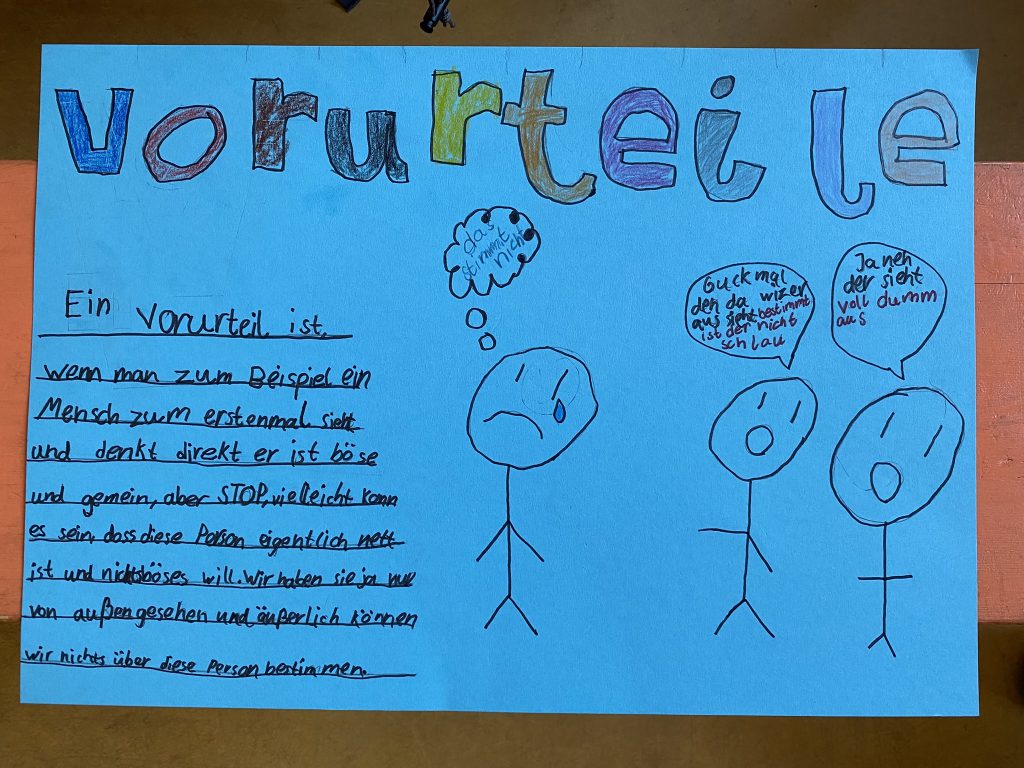 Vorurteile
das
stimmt
nicht
Guck mal
den da wizer
aus sieht bestimmt
ist der nicht
schlau
Ja neh
der sieht
voll dumm
aus
Ein Vorurteil ist,
wenn man zum Beispiel ein
Mensch zum erstenmal sieht
und denkt direkt er ist böse
und gemein, aber STOP, vielleicht kann
es sein, dass diese Person eigentlich nett
ist und nichts böses will. Wir haben sie ja nur
von außen gesehen und äußerlich können
wir nichts über diese Person bestimmen.